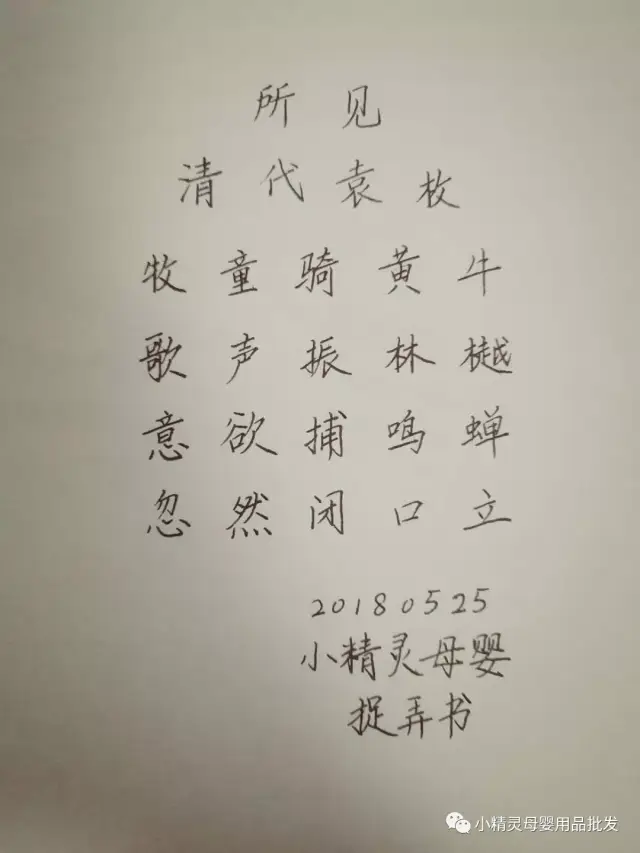 所见
清代袁枚
牧童骑黄牛
歌声振林樾
意欲捕鸣蝉
忽然闭口立
20180525
小精灵母婴
捉弄书
小精灵母婴用品批发